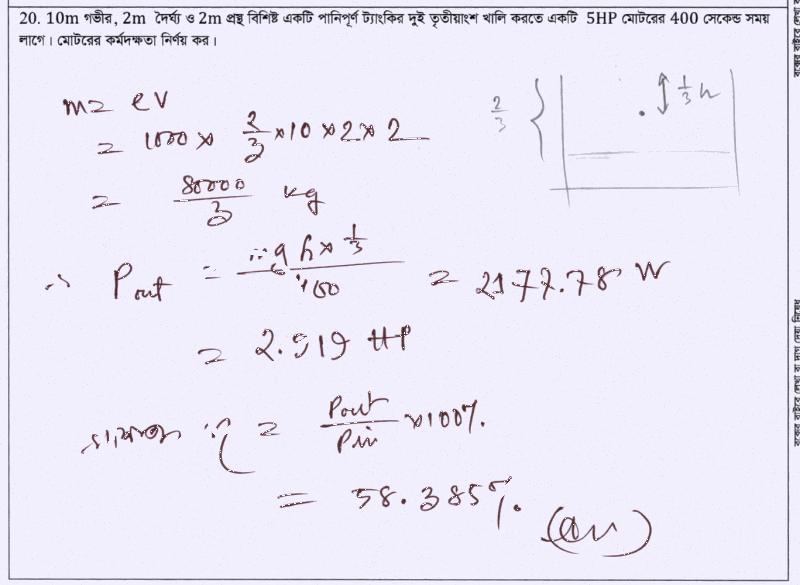 20. 10m গভীর, 2m দৈর্ঘ্য ও 2m প্রস্থ বিশিষ্ট একটি পানিপূর্ণ ট্যাংকির দুই তৃতীয়াংশ খালি করতে একটি 5HP মোটরের 400 সেকেন্ড সময়
লাগে। মোটরের কর্মদক্ষতা নির্ণয় কর।
m = ρV
= 1000 × 2/3 × 10 × 2 × 2
= 80000/3 kg
2/3
1/3 h
∴ Pout = mgh × 1/3 / 400 = 2177.78 W
= 2.919 HP
η = Pout/Pin × 100%
= 58.385%. (Ans)